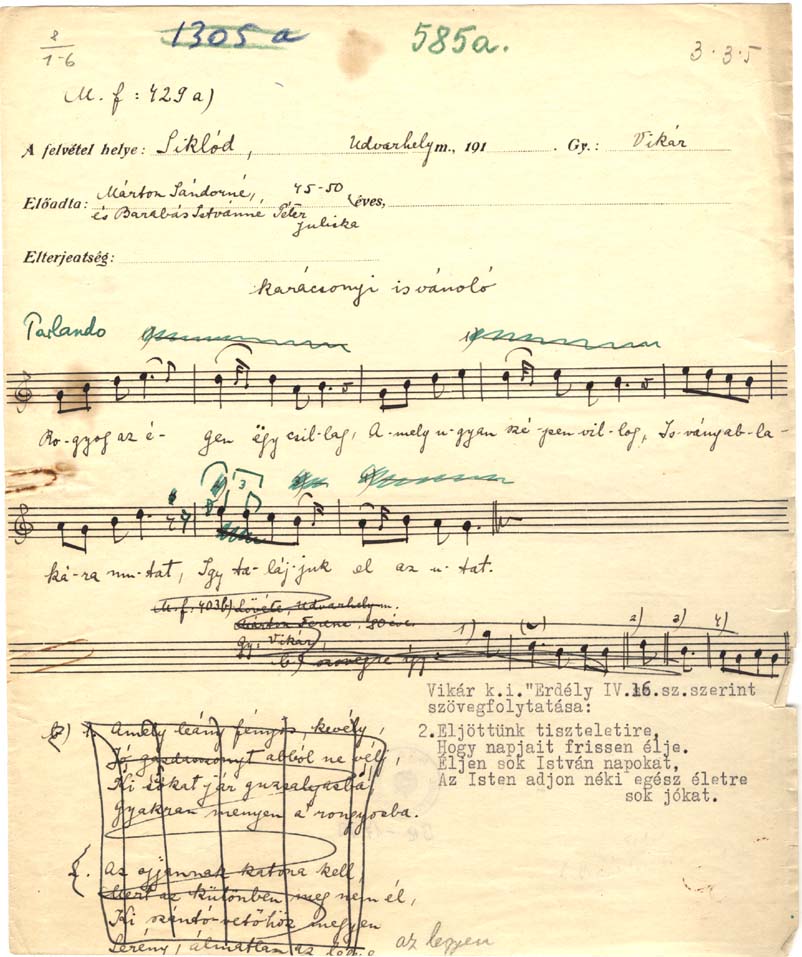 8/1-6
1305 a
585a.
3·3·5
M. f : 429 a)
A felvétel helye: Siklód, Udvarhely m., 191 . Gy.: Vikár
Előadta: Márton Sándorné, 45-50 éves,
és Barabás Istvánné Péter
Juliska
Elterjeatség:
karácsonyi isvánoló
Parlando
Ro-gyog az é- gen ëgy csil-lag, A-mely u-gyan szé-pen vil-log, Is-vány ab-la-
3
ká-ra mu-tat, Igy ta-láj-juk el az u-tat.
M.f: 403b) Lövéte, Udvarhely m.
Márton Ferenc, 80 éves
gy. Vikár
1) 2) 3) 4)
Vikár k.i."Erdély IV.16.sz.szerint
szövegfolytatása:
2.Eljöttünk tiszteletire,
Hogy napjait frissen élje.
Éljen sok István napokat,
Az Isten adjon néki egész életre
sok jókat.
b) 1. Amely leány fényös, kevély,
Jó gazdasszonyt abból ne vélj,
Ki sokat jár guzsalyasba,
Gyakran menyen a rongyosba.
2. Az ojjannak katona kell,
Mert az különben meg nem él,
Ki szántó-vetőhöz megyen
Serény, álmatlan az
az legyen